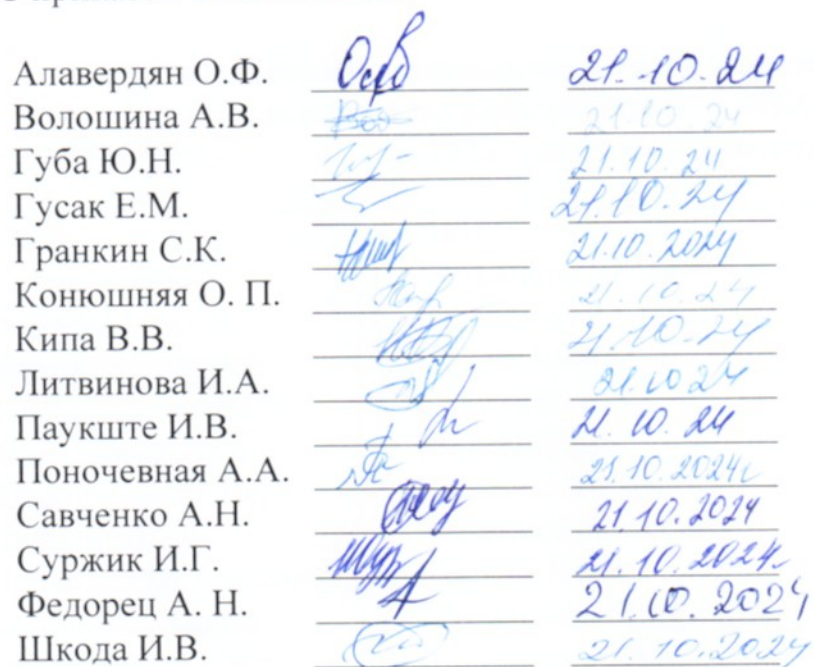 Алавердян О.Ф. 21.10.24
Волошина А.В. 21.10.24
Губа Ю.Н. 21.10.24
Гусак Е.М. 21.10.24
Гранкин С.К. 21.10.2024
Конюшняя О. П. 21.10.24
Кипа В.В. 21.10.24
Литвинова И.А. 21.10.24
Паукште И.В. 21.10.24
Поночевная А.А. 21.10.2024г
Савченко А.Н. 21.10.2024
Суржик И.Г. 21.10.2024г.
Федорец А. Н. 21.10.2024
Шкода И.В. 21.10.2024